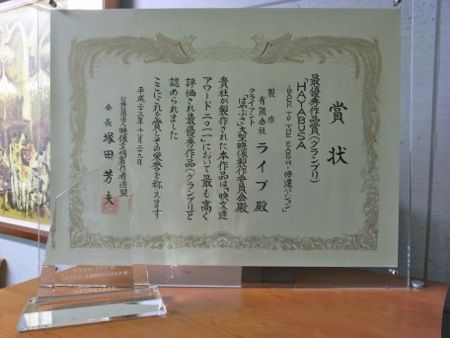 賞状
最優秀作品賞(グランプリ)
「HAYABUSA
-BACK TO THE EARTH-帰還バージョン」
製作
有限会社 ライブ殿
クライアント
「はやぶさ」大型映像製作委員会殿
貴社が製作された本作品は、「映文連
アワード二〇一一」において最も高く
評価され最優秀作品(グランプリ)と
認められました
ここにこれを賞しその栄誉を称えます
平成二十三年十一月二十九日
公益社団法人映像文化製作者連盟
会長 塚田芳夫